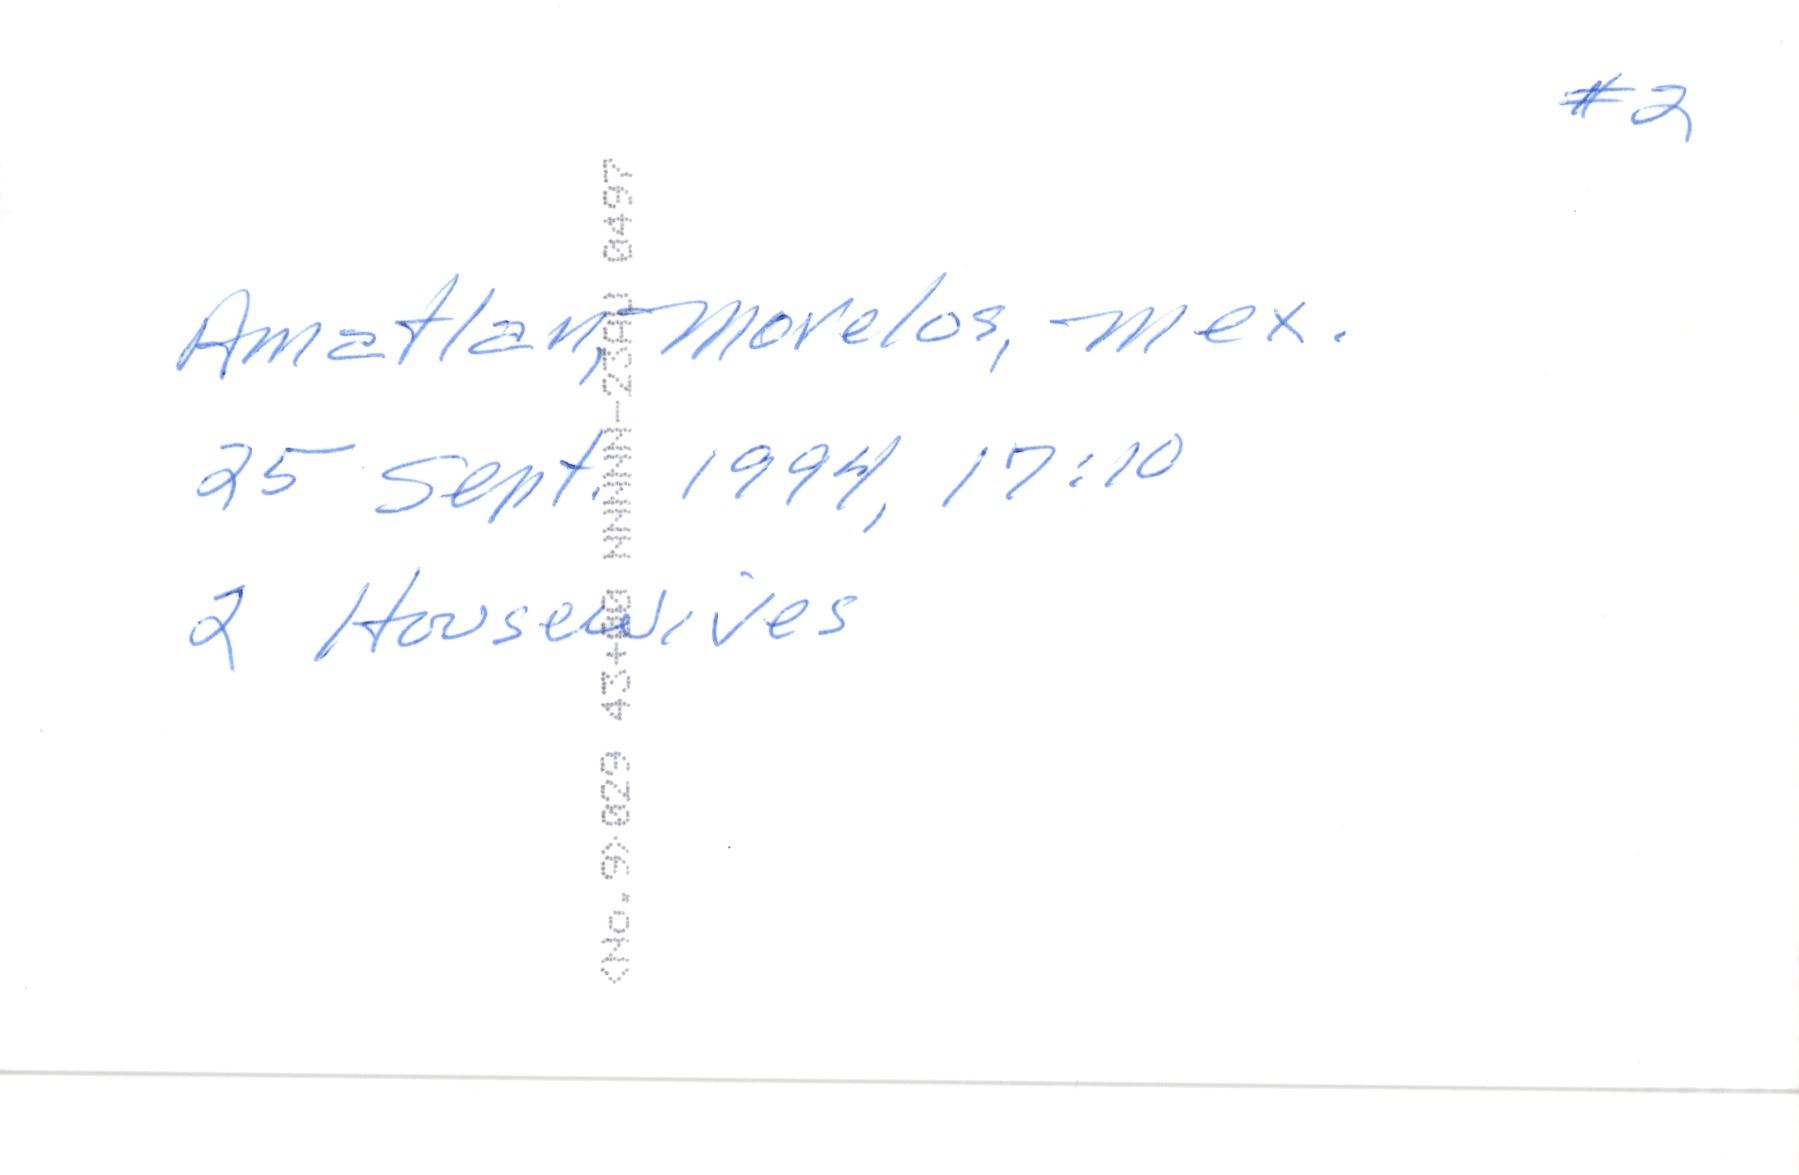 #2
Amatlan, Morelos, Mex.
25 Sept. 1994, 17:10
2 Housewives
<No.9>029 43+00 NNNNN-23AU 0497